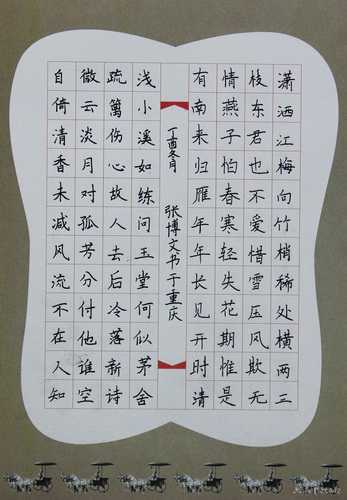 潇洒江梅向竹梢稀处横两三
枝东君也不爱惜雪压风欺无
情燕子怕春寒轻失花期惟是
有南来归雁年年长见开时清
丁酉冬月 张博文书于重庆
浅小溪如练问玉堂何似茅舍
疏篱伤心故人去后冷落新诗
微云淡月对孤芳分付他谁空
自倚清香未减风流不在人知